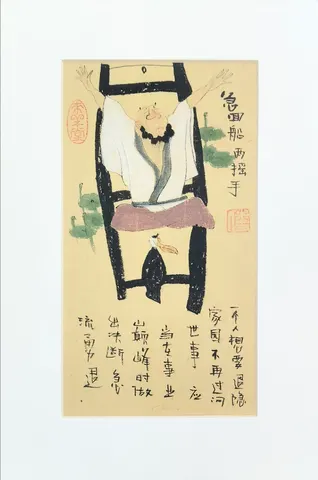 急回船两摇手
一个人想要退隐
家园不再过问
世事 应
当在事业
巅峰时做
出决断 急
流勇退